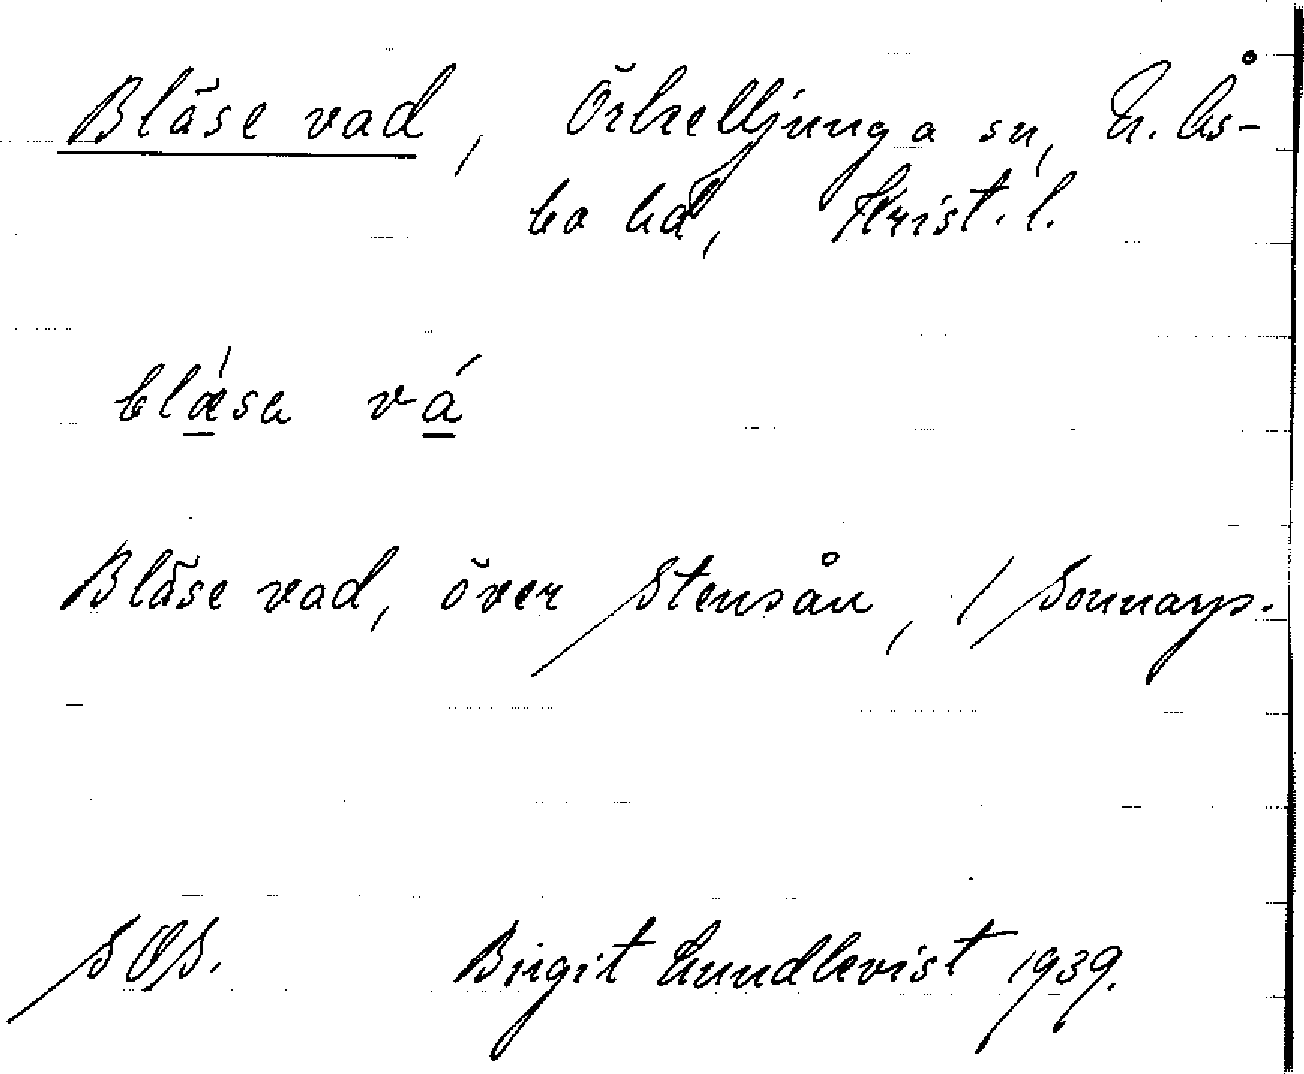 Bläse vad, Örkelljunga sn, N. Ås-
bo hd, Krist. l.
blæsa vá
Bläse vad, över Stensån, / Sonnarp.
SOS. Birgit Lundkvist 1939.